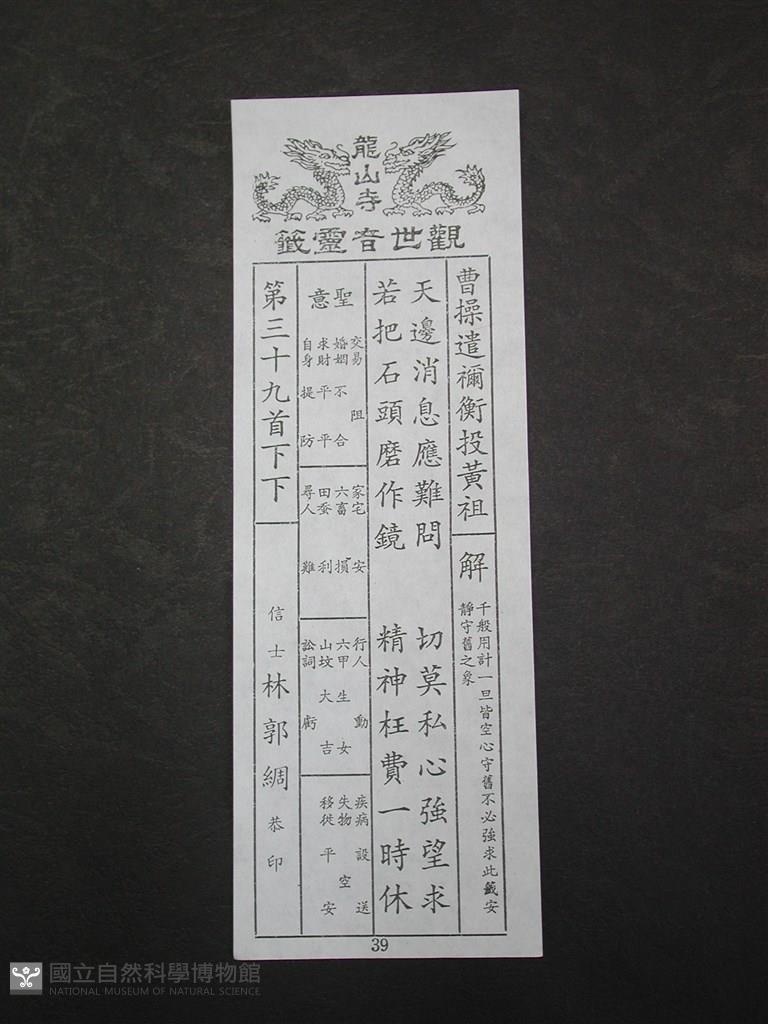 龍山寺
觀世音靈籤
曹操遣禰衡投黃祖
解
千般用計一旦皆空心守舊不必強求此籤安
靜守舊之象
天邊消息應難問 切莫私心強望求
若把石頭磨作鏡 精神枉費一時休
聖意
交易 阻
婚姻 不合
求財 平平
自身 提防
家宅 安
六畜 損
田蚕 利
尋人 難
行人 動
六甲 生女
山坟 大吉
訟詞 虧
疾病 設送
失物 空
移徙 平安
第三十九首下下
信士林郭綢恭印
39
國立自然科學博物館
NATIONAL MUSEUM OF NATURAL SCIENCE